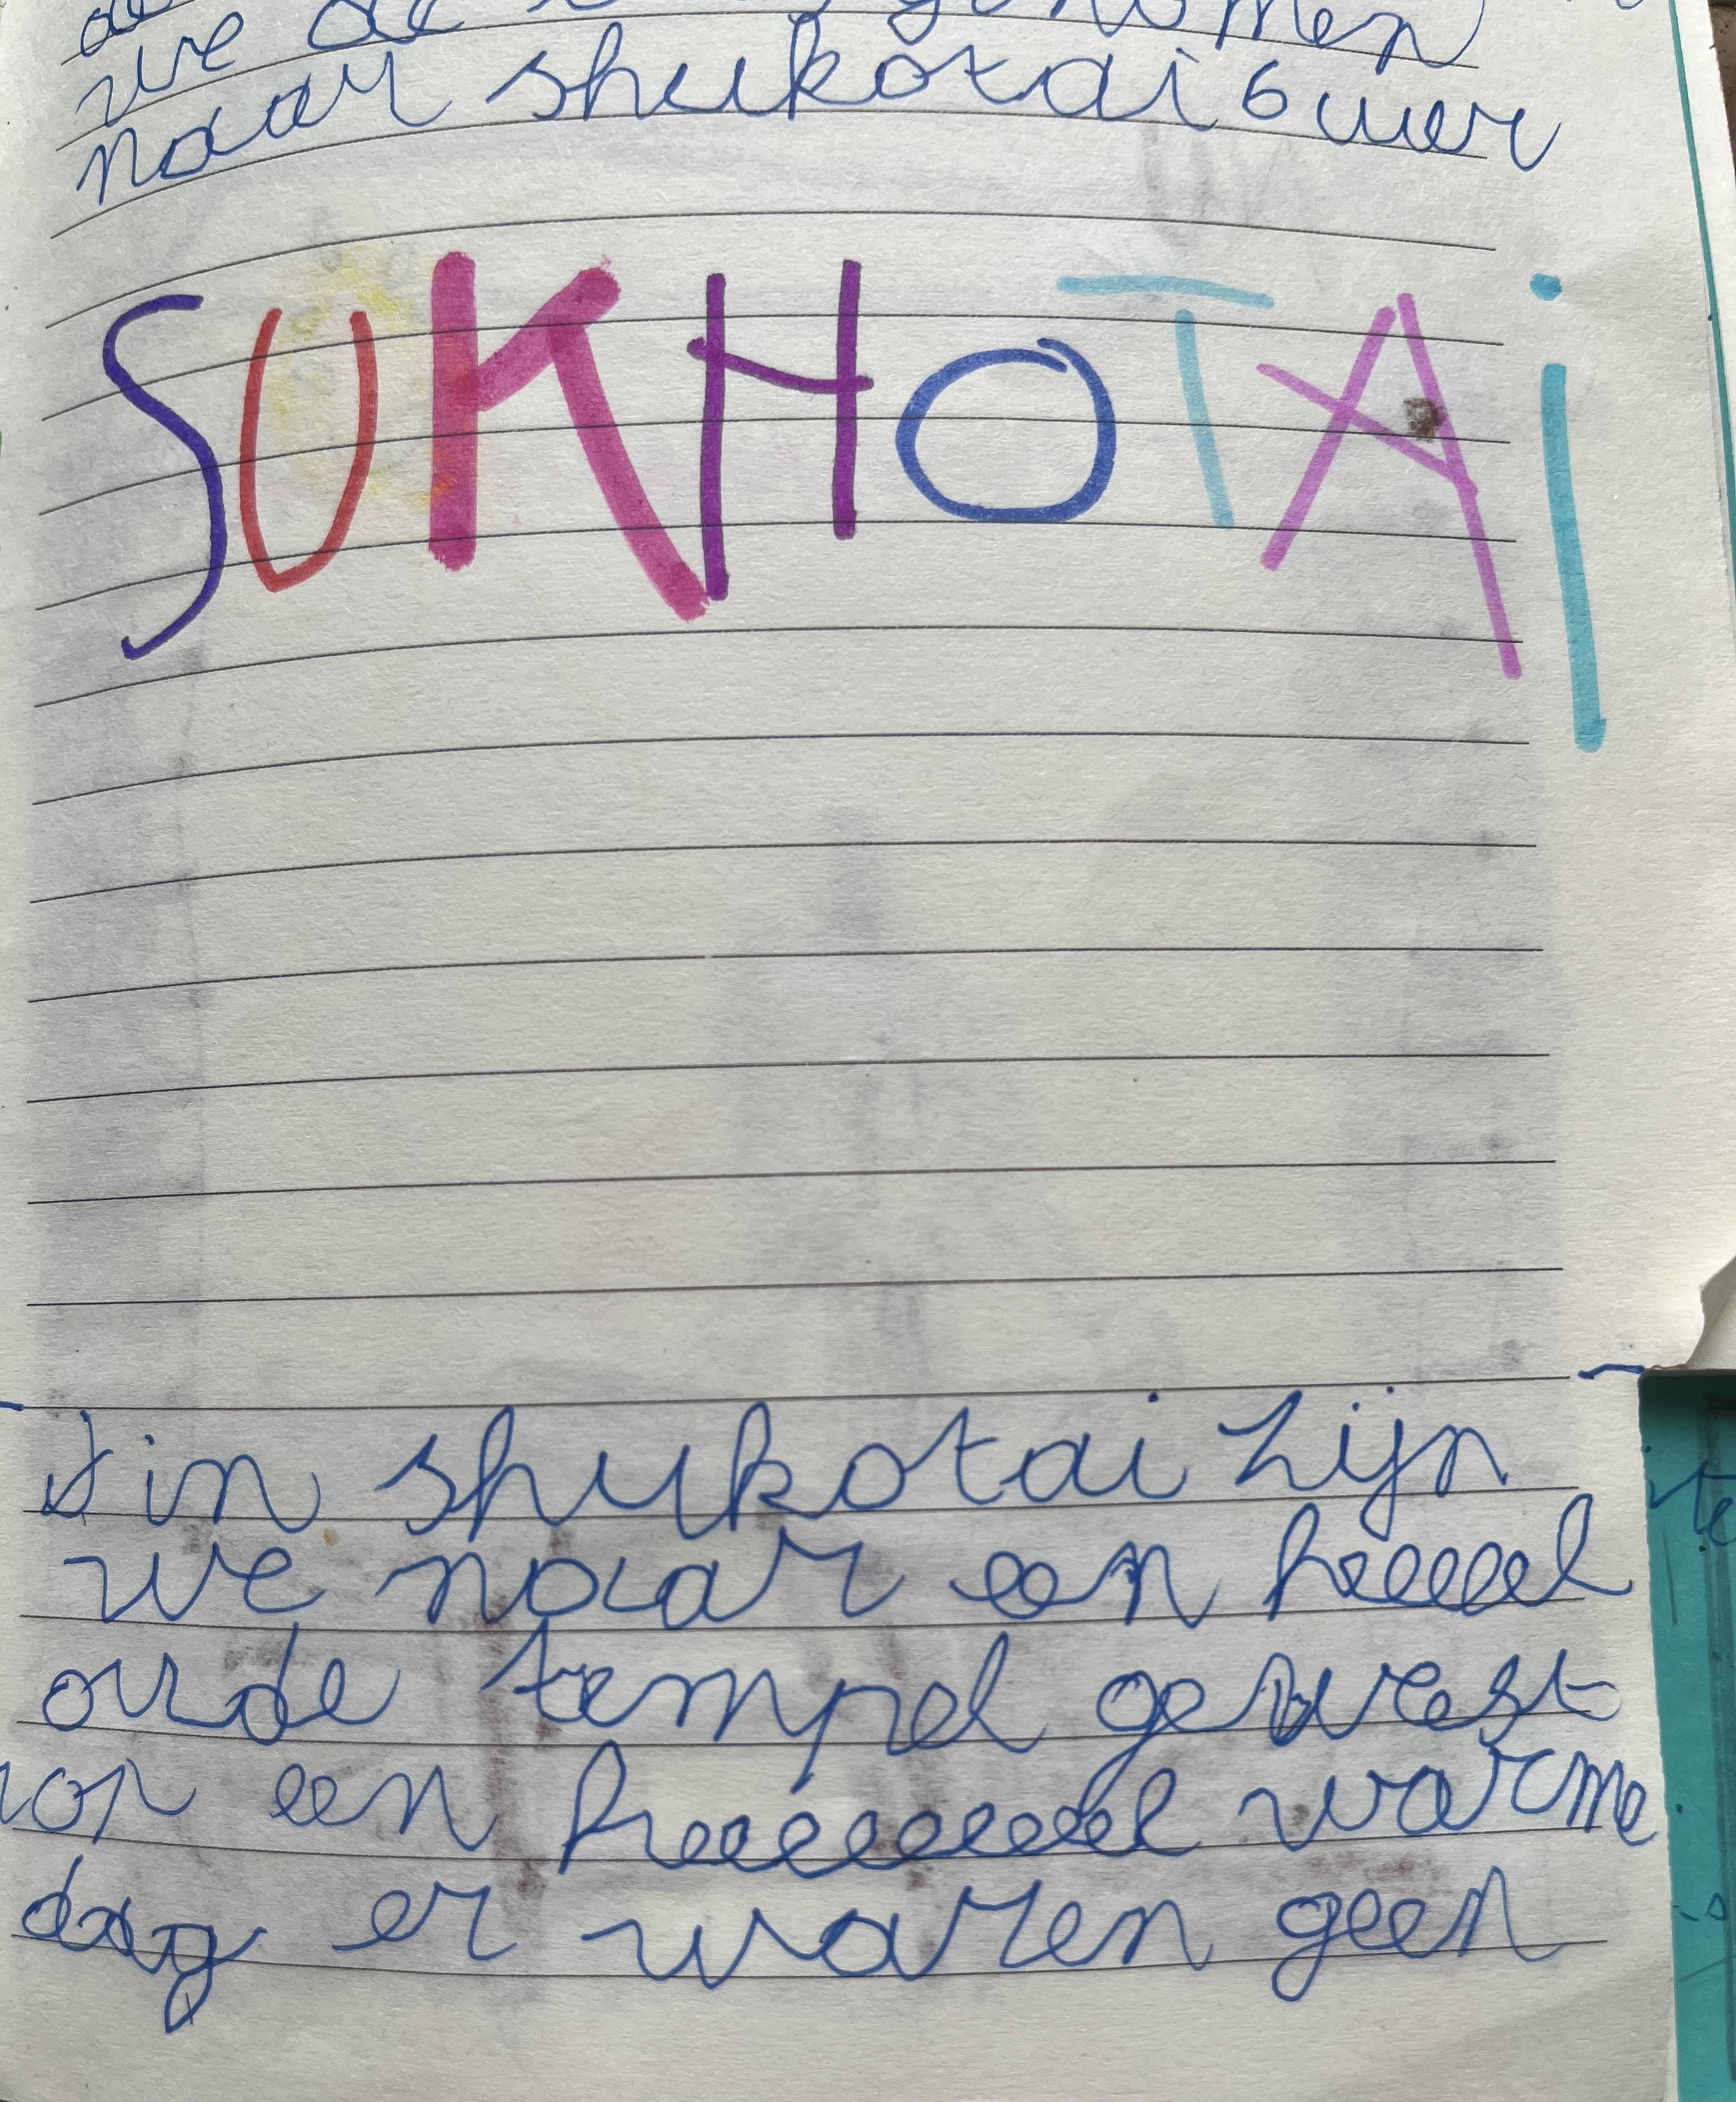 we de genomen
naar shukotai 6 uur
SUKHOTAi
in shukotai zijn
we naar een heeeel
oude tempel geweest
op een heeeeeeeel warme
dag er waren geen